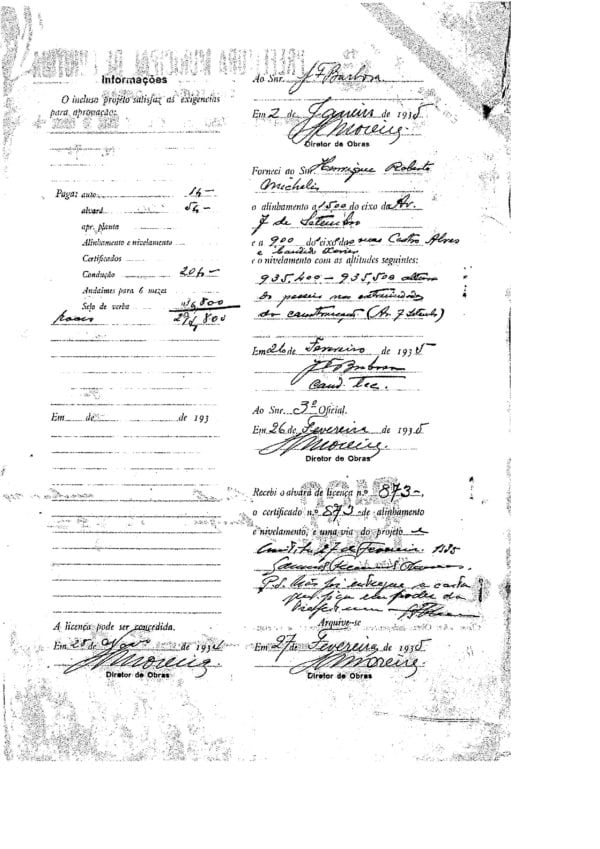 Informações
O incluso projeto satisfaz as exigencias
para aprovação:
Paga: auto 14-
alvará
apr. planta
Alinhamento e nivelamento
Certificados
Condução 20$-
Andaimes para 6 mezes
Selo de verba $800
Em de de 193
A licença pode ser concedida.
Em 28 de de 193
Moreira
Diretor de Obras
Ao Snr. J F Barbosa
Em 2 de Janeiro de 1935
Moreira
Diretor de Obras
Forneci ao Snr. Henrique Roberto
Michelis
o alinhamento a 1500 do eixo da Av.
7 de Setembro
e a 900 do eixo das ruas Castro Alves
e Candido Xavier
e o nivelamento com as altitudes seguintes:
935,400 - 935,500 altura
do passeio nas extremidades
da construcção (Av. 7 Setembro)
Em 26 de Fevereiro de 1935
J F Barbosa
Ao Snr. 3º Oficial.
Em 26 de Fevereiro de 1935
Moreira
Diretor de Obras
Recebi o alvará de licença n.º 873-,
o certificado n.º 873 de alinhamento
e nivelamento, e uma via do projeto
Curitiba 27 de Fevereiro 1935
P.S. Não foi entregue a carta
em poder da
Arquive-se
Em 27 de Fevereiro de 1935
Moreira
Diretor de Obras